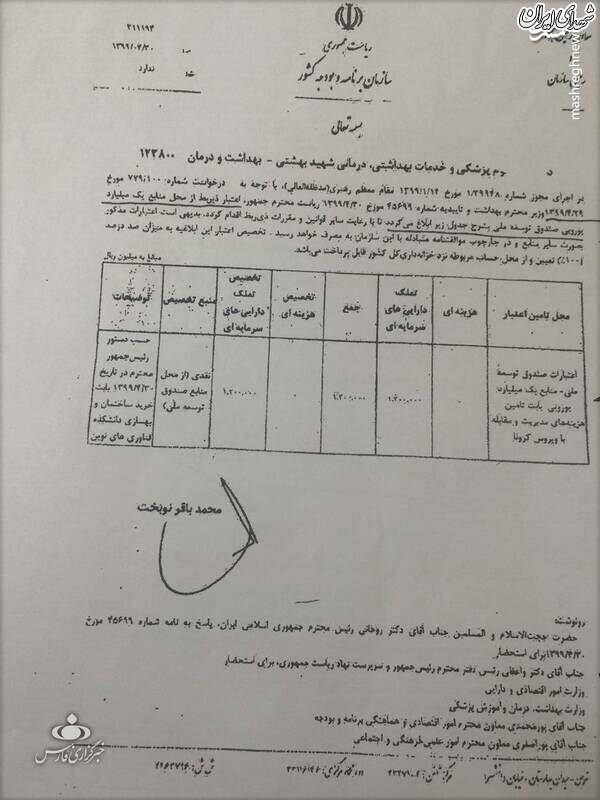 شهدای ایران
mashreghnews
۲۱۱۱۹۴
۱۳۹۹/۰۴/۳۰
ندارد
ریاست جمهوری
سازمان برنامه و بودجه کشور
رئیس سازمان
بسمه تعالی
پزشکی و خدمات بهداشتی، درمانی شهید بهشتی - بهداشت و درمان ۱۲۳۸۰۰
در اجرای مجوز شماره ۱/۳۹۹۴۸ مورخ ۱۳۹۹/۱/۱۴ مقام معظم رهبری (مدظله‌العالی)، با توجه به درخواست شماره ۷۷۹/۱۰۰ مورخ
۱۳۹۹/۴/۲۹ وزیر محترم بهداشت و تاییدیه شماره ۴۵۶۹۹ مورخ ۱۳۹۹/۴/۳۰ ریاست محترم جمهور، اعتبار ذیربط از محل منابع یک میلیارد
یورویی صندوق توسعه ملی بشرح جدول زیر ابلاغ می‌گردد تا با رعایت سایر قوانین و مقررات ذیربط اقدام گردد. بدیهی است اعتبارات مذکور
بصورت سایر منابع و در چارچوب موافقتنامه متبادله با این سازمان به مصرف خواهد رسید. تخصیص اعتبار این ابلاغیه به میزان صد درصد
(۱۰۰٪) تعیین و از محل حساب مربوطه نزد خزانه‌داری کل کشور قابل پرداخت می‌باشد.
مبالغ به میلیون ریال
محل تامین اعتبار | هزینه ای | تملک دارایی های سرمایه ای | جمع | تخصیص هزینه ای | تخصیص تملک دارایی‌های سرمایه ای | منبع تخصیص | توضیحات
اعتبارات صندوق توسعه ملی - منابع یک میلیارد یورویی بابت تامین هزینه‌های مدیریت و مقابله با ویروس کرونا | ۰ | ۱،۲۰۰،۰۰۰ | ۱،۲۰۰،۰۰۰ | ۰ | ۱،۲۰۰،۰۰۰ | نقدی (از محل منابع صندوق توسعه ملی) | حسب دستور رئیس‌جمهور محترم در تاریخ ۱۳۹۹/۴/۳۰ بابت خرید ساختمان و بهسازی دانشکده فناوری های نوین
محمد باقر نوبخت
رونوشت:
حضرت حجت‌الاسلام و المسلمین جناب آقای دکتر روحانی رئیس محترم جمهوری اسلامی ایران، پاسخ به نامه شماره ۴۵۶۹۹ مورخ
۱۳۹۹/۴/۳۰ برای استحضار
جناب آقای دکتر واعظی رئیس دفتر محترم رئیس‌جمهور و سرپرست نهاد ریاست جمهوری، برای استحضار
وزارت امور اقتصادی و دارایی
وزارت بهداشت، درمان و آموزش پزشکی
جناب آقای پورمحمدی معاون محترم امور اقتصادی و هماهنگی برنامه و بودجه
جناب آقای پوراصغری معاون محترم امور علمی، فرهنگی و اجتماعی
خبرگزاری فارس